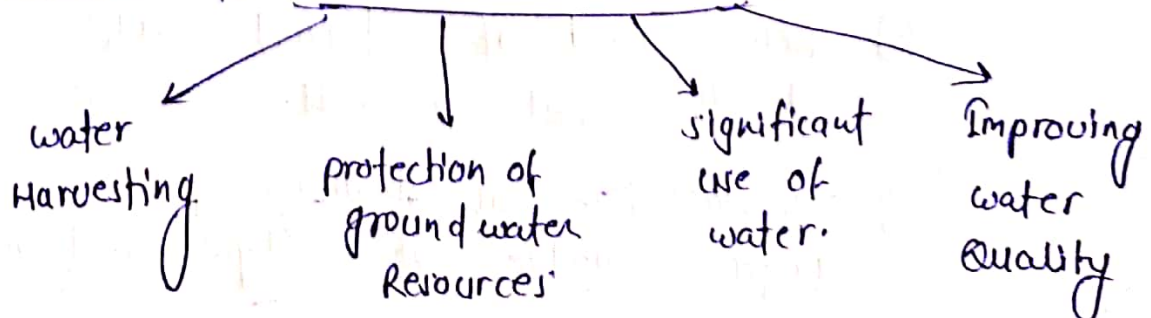 water
Harvesting
protection of
ground water
Resources
significant
use of
water.
Improving
water
Quality